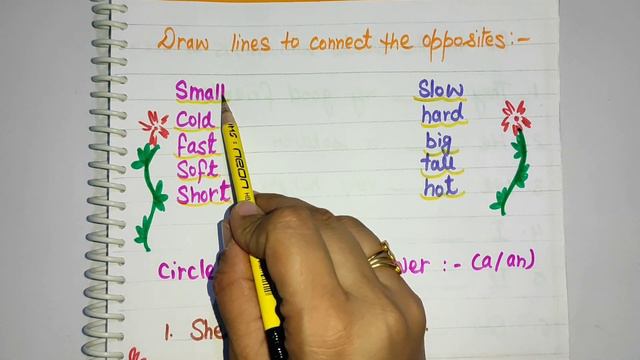 Draw lines to connect the opposites:-
Small Slow
Cold hard
fast big
Soft tall
Short hot
Circle :- (a/an)
1. She
neon